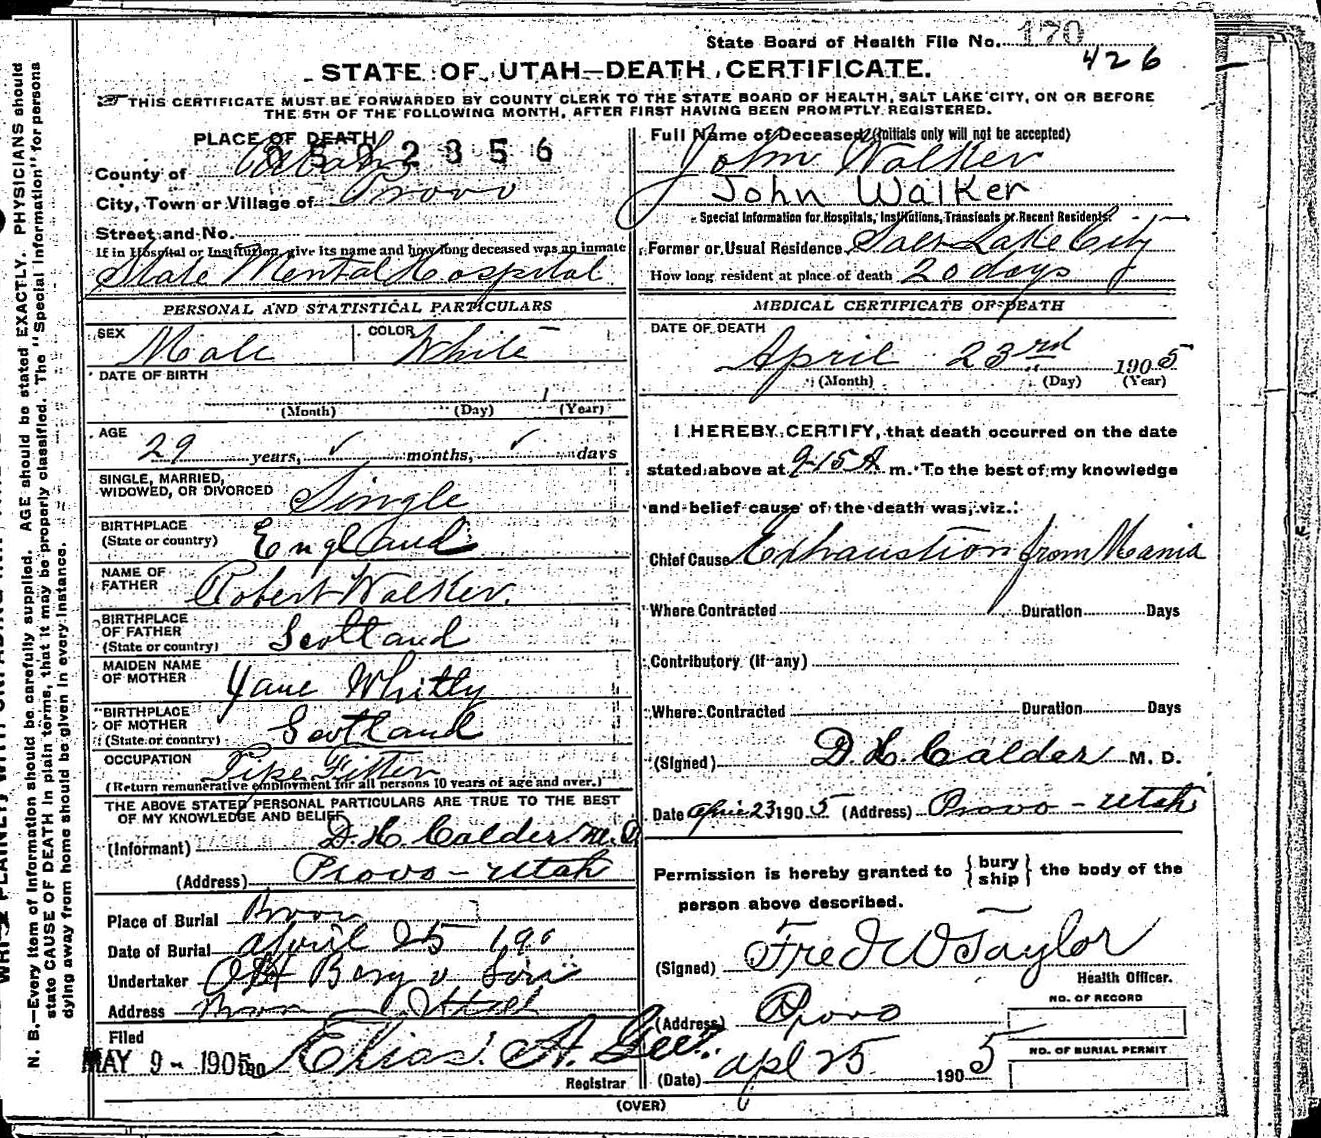 State Board of Health File No. 170
426
STATE OF UTAH—DEATH CERTIFICATE.
THIS CERTIFICATE MUST BE FORWARDED BY COUNTY CLERK TO THE STATE BOARD OF HEALTH, SALT LAKE CITY, ON OR BEFORE
THE 5TH OF THE FOLLOWING MONTH, AFTER FIRST HAVING BEEN PROMPTLY REGISTERED.
PLACE OF DEATH
0502356
County of Utah
City, Town or Village of Provo
Street and No.
If in Hospital or Institution, give its name and how long deceased was an inmate
State Mental Hospital
PERSONAL AND STATISTICAL PARTICULARS
SEX Male COLOR White
DATE OF BIRTH
(Month) (Day) (Year)
AGE
29 years, ✓ months, ✓ days
SINGLE, MARRIED,
WIDOWED, OR DIVORCED Single
BIRTHPLACE
(State or country) England
NAME OF
FATHER Robert Walker.
BIRTHPLACE
OF FATHER
(State or country) Scotland
MAIDEN NAME
OF MOTHER Jane Whitly
BIRTHPLACE
OF MOTHER
(State or country) Scotland
OCCUPATION Pipe Fitter
(Return remunerative employment for all persons 10 years of age and over.)
THE ABOVE STATED PERSONAL PARTICULARS ARE TRUE TO THE BEST
OF MY KNOWLEDGE AND BELIEF
(Informant) D. H. Calder M. D.
(Address) Provo - Utah
Place of Burial Provo
Date of Burial April 25 190
Undertaker Berg & Sons
Address Provo Utah
Filed
MAY 9 - 1905 190 Elias A. Gee.
Registrar
(OVER)
Full Name of Deceased (Initials only will not be accepted)
John Walker
John Walker
Special Information for Hospitals, Institutions, Transients or Recent Residents.
Former or Usual Residence Salt Lake City
How long resident at place of death 20 days
MEDICAL CERTIFICATE OF DEATH
DATE OF DEATH
April 23rd 1905
(Month) (Day) (Year)
I HEREBY CERTIFY, that death occurred on the date
stated above at 9-15 A m. To the best of my knowledge
and belief cause of the death was, viz.:
Chief Cause Exhaustion from Mania
Where Contracted Duration Days
Contributory (if any)
Where Contracted Duration Days
(Signed) D. H. Calder M. D.
Date April 23 1905 (Address) Provo - Utah
Permission is hereby granted to { bury ship } the body of the
person above described.
(Signed) Fred W Taylor
Health Officer.
(Address) Provo
(Date) Apl 25 1905
NO. OF RECORD
NO. OF BURIAL PERMIT
N. B.—Every item of information should be carefully supplied. AGE should be stated EXACTLY. PHYSICIANS should
state CAUSE OF DEATH in plain terms, that it may be properly classified. The "Special Information" for persons
dying away from home should be given in every instance.